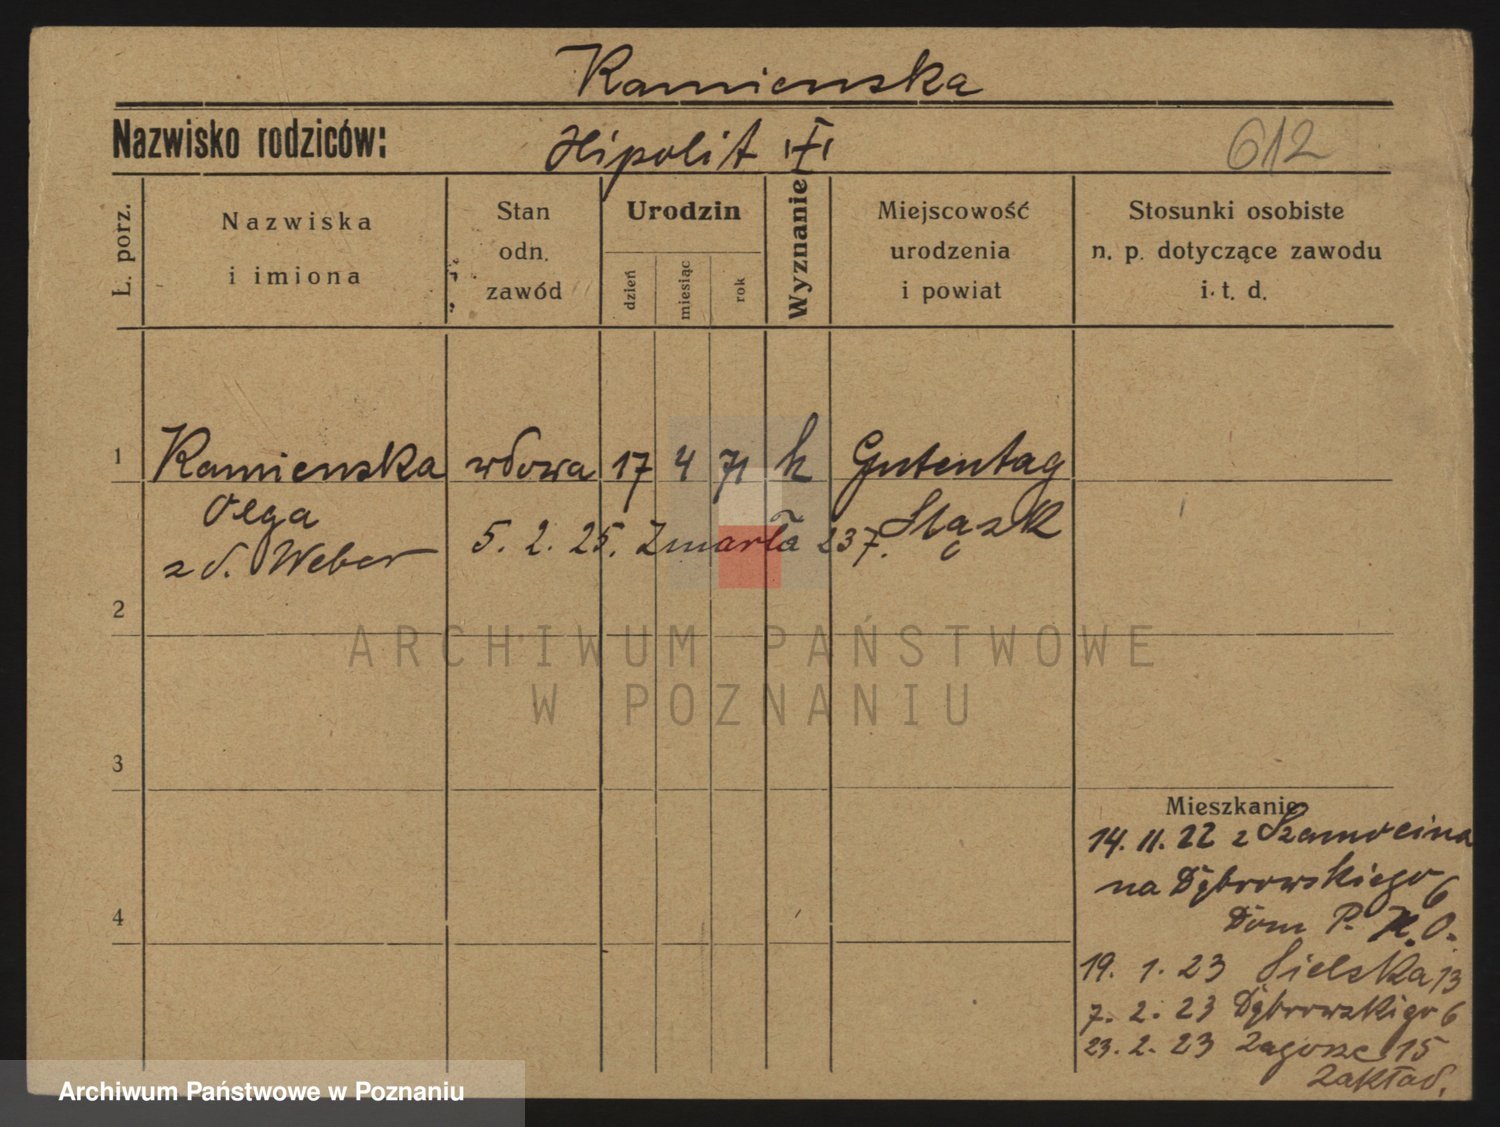 Kamienska
Nazwisko rodziców: Hipolit
612
L. porz.
Nazwiska
i imiona
Stan
odn.
zawód
Urodzin
dzień
miesiąc
rok
Wyznanie
Miejscowość
urodzenia
i powiat
Stosunki osobiste
n. p. dotyczące zawodu
i t. d.
1 Kamienska wdowa 17 4 71 k Gutentag
Olga
5. 2. 25. Zmarła 237. Śląsk
z d. Weber
2
3
4
Mieszkanie
14. 11. 22 z Szamocina
na Dąbrowskiego 6
Dom P. K. O.
19. 1. 23 Sielska 13
7. 2. 23 Dąbrowskiego 6
23. 2. 23 Zagorze 15
Zakład.
ARCHIWUM PAŃSTWOWE
W POZNANIU
Archiwum Państwowe w Poznaniu